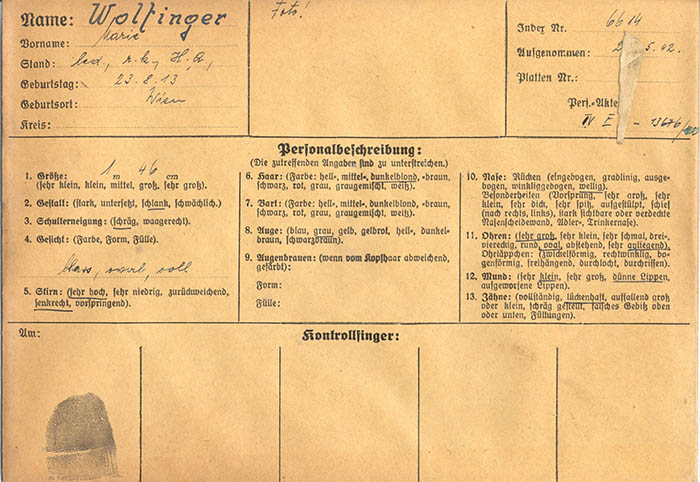 Name: Wolfinger
Vorname: Marie
Stand: led., r.k., H.A.,
Geburtstag: 23.8.13
Geburtsort: Wien
Kreis:
Foto!
Index Nr. 6614
Aufgenommen: 2 5.42.
Platten Nr.:
Pers.-Akte
IV E -
Personalbeschreibung:
(Die zutreffenden Angaben sind zu unterstreichen.)
1. Größe: 1 m 46 cm
(sehr klein, klein, mittel, groß, sehr groß).
2. Gestalt: (stark, untersetzt, schlank, schwächlich).
3. Schulterneigung: (schräg, waagerecht).
4. Gesicht: (Farbe, Form, Fülle).
blass, oval, voll
5. Stirn: (sehr hoch, sehr niedrig, zurückweichend,
senkrecht, vorspringend).
6. Haar: (Farbe: hell-, mittel-, dunkelblond, -braun,
schwarz, rot, grau, graugemischt, weiß).
7. Bart: (Farbe: hell-, mittel-, dunkelblond, -braun,
schwarz, rot, grau, graugemischt, weiß).
8. Auge: (blau, grau, gelb, gelbrot, hell-, dunkel-
braun, schwarzbraun).
9. Augenbrauen: (wenn vom Kopfhaar abweichend,
gefärbt):
Form:
Fülle:
10. Nase: Rücken (eingebogen, gradlinig, ausge-
bogen, winkliggebogen, wellig).
Besonderheiten (Vorsprung, sehr groß, sehr
klein, sehr dick, sehr spitz, aufgestülpt, schief
(nach rechts, links), stark sichtbare oder verdeckte
Nasenscheidewand, Adler-, Trinkernase).
11. Ohren: (sehr groß, sehr klein, sehr schmal, drei-,
viereckig, rund, oval, abstehend, sehr anliegend).
Ohrläppchen: (zwickelförmig, rechtwinklig, bo-
genförmig, freihängend, durchlocht, durchrissen).
12. Mund: (sehr klein, sehr groß, dünne Lippen,
aufgeworfene Lippen).
13. Zähne: (vollständig, lückenhaft, auffallend groß
oder klein, schräg gestellt, falsches Gebiß oben
oder unten, Füllungen).
Am:
Kontrollfinger: